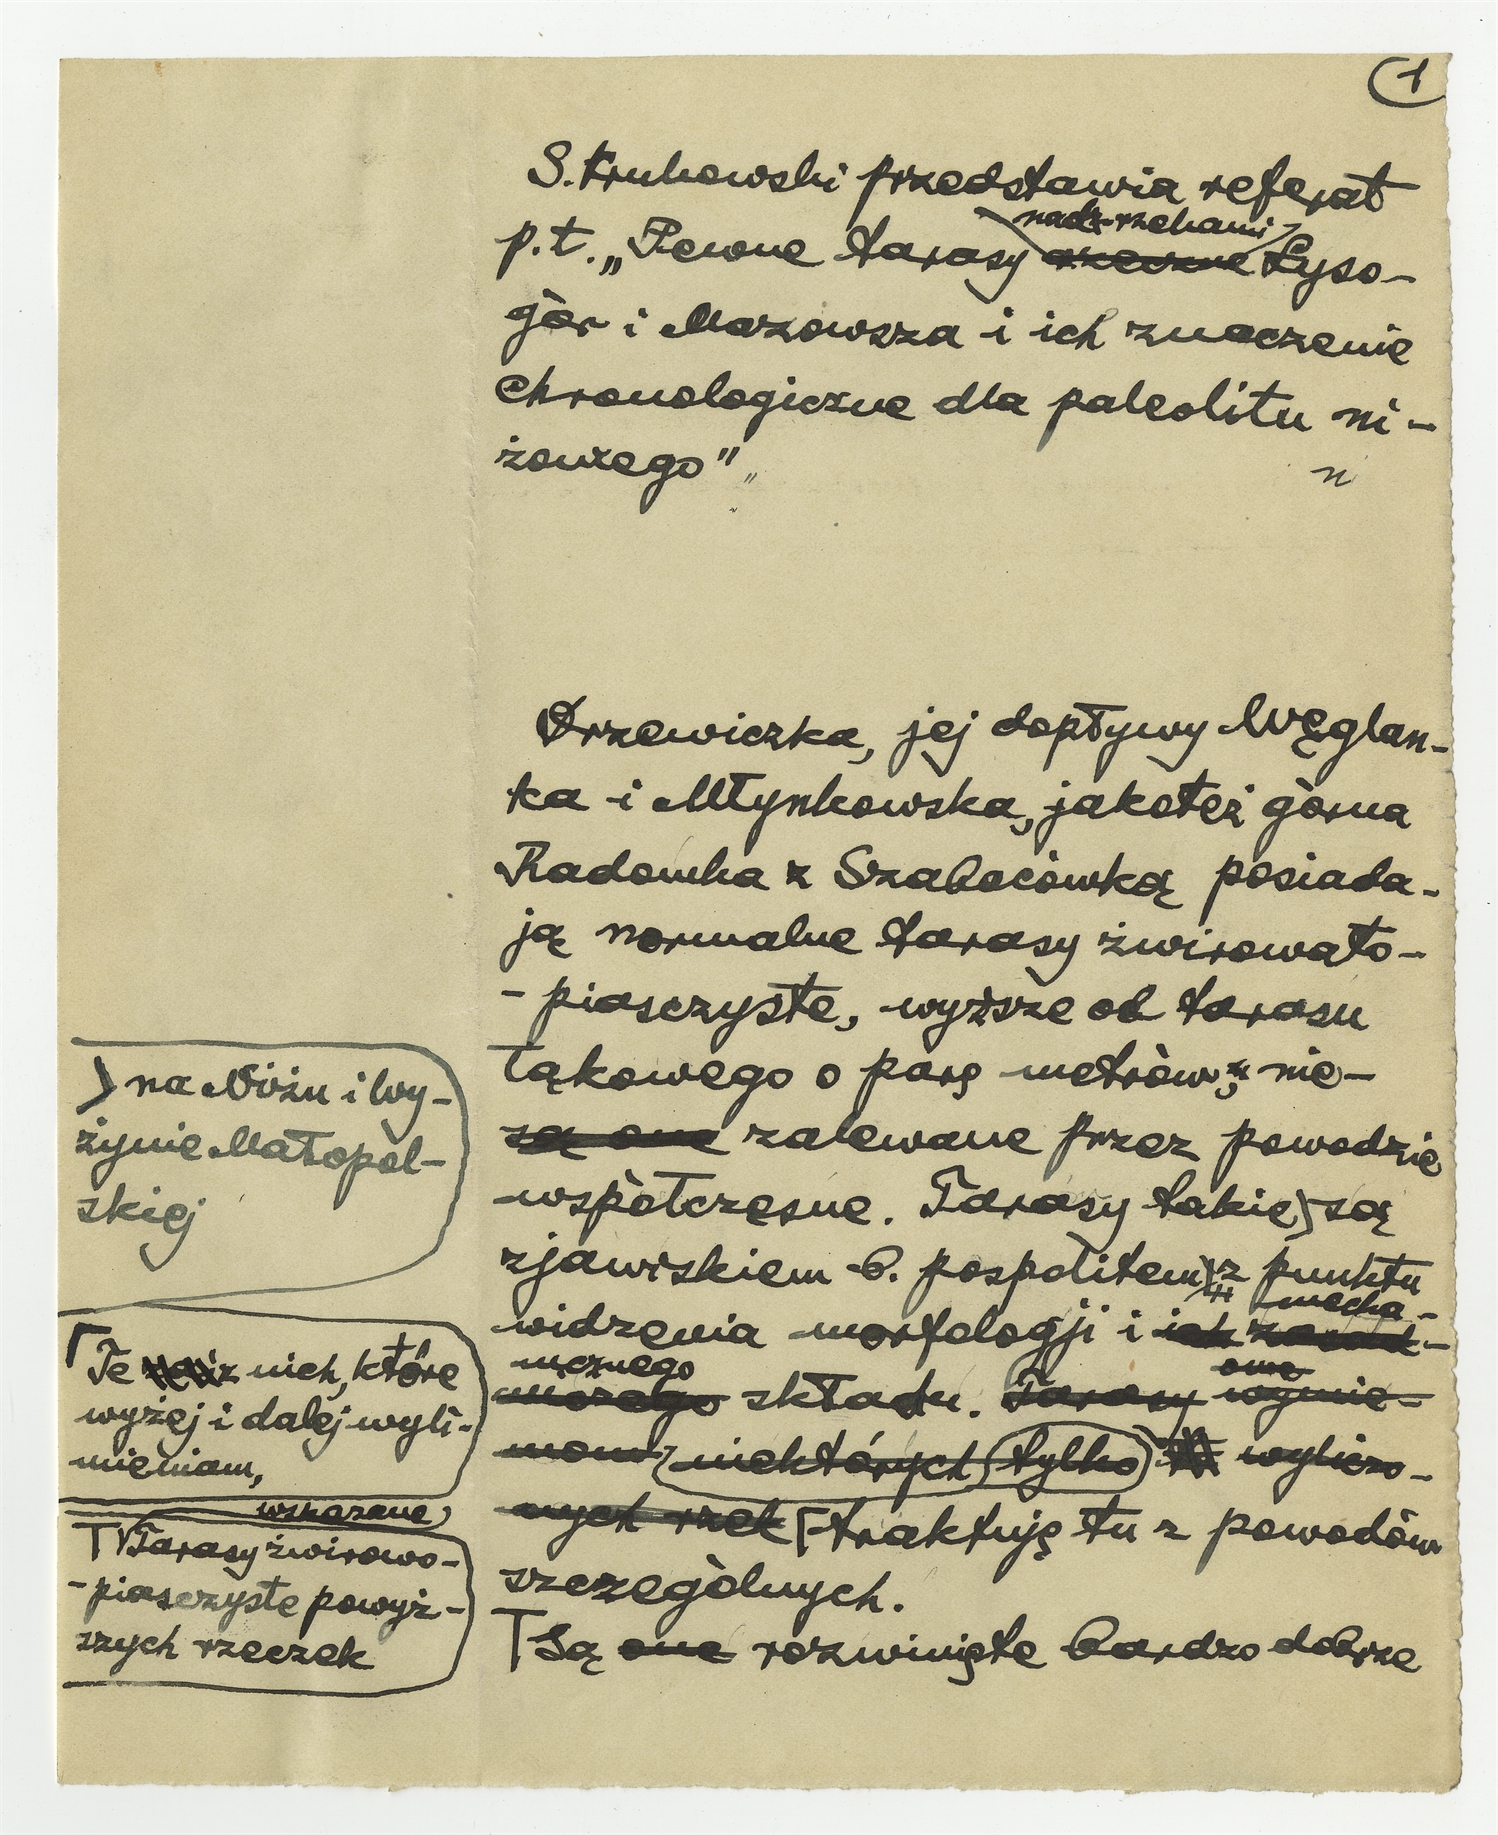 1
S. Krukowski przedstawia referat
nad rzekami
p.t. „Pewne tarasy rzeczne Łyso-
gór i Mazowsza i ich znaczenie
chronologiczne dla paleolitu ni-
żowego"
n
Drzewiczka, jej dopływy Węglan-
ka i Młynkowska, jakoteż górna
Radomka z Szabasówką posiada-
ją normalne tarasy żwirowato-
- piasczyste, wyższe od tarasu
łąkowego o parę metrów, nie-
są one zalewane przez powodzie
współczesne. Tarasy takie) są
zjawiskiem b. pospolitem z punktu
mecha-
widzenia morfologji i ich
nicznego one
składu. Tarasy wymie-
niektórych tylko wyliczo-
nych rzek [traktuję tu z powodów
szczególnych.
Są one rozwinięte bardzo dobrze
) na Niżu i Wy-
żynie Małopol-
skiej
Te z nich, które
wyżej i dalej wyli-
mieniam,
wskazane
Tarasy żwirowo-
- piasczyste powyż-
szych rzeczek